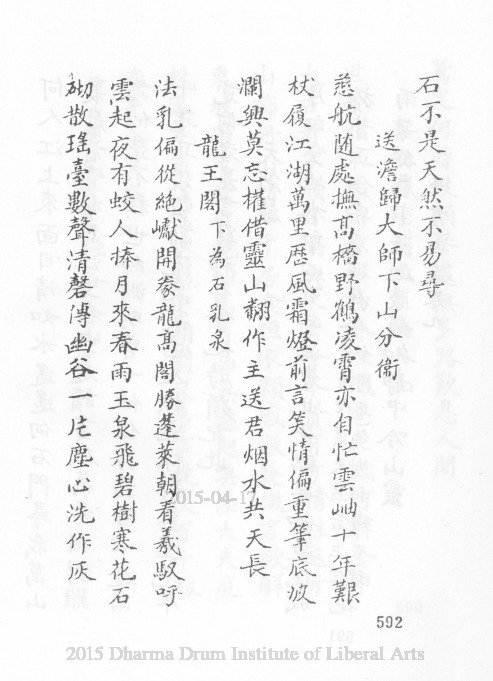 石不是天然不易尋
送澹歸大師下山分衛
慈航隨處撫髙檣野鶴淩霄亦自忙雲岫十年艱
杖履江湖萬里歷風霜燈前言笑情偏重筆底波
瀾興莫忘權借靈山翻作主送君烟水共天長
龍王閣下為石乳泉
法乳偏從絶巘開豢龍髙閣勝蓬萊朝看羲馭呼
雲起夜有蛟人捧月來春雨玉泉飛碧樹寒花石
砌散瑤臺數聲清磬傳幽谷一片塵心洗作灰
592
2015-04-17
2015 Dharma Drum Institute of Liberal Arts